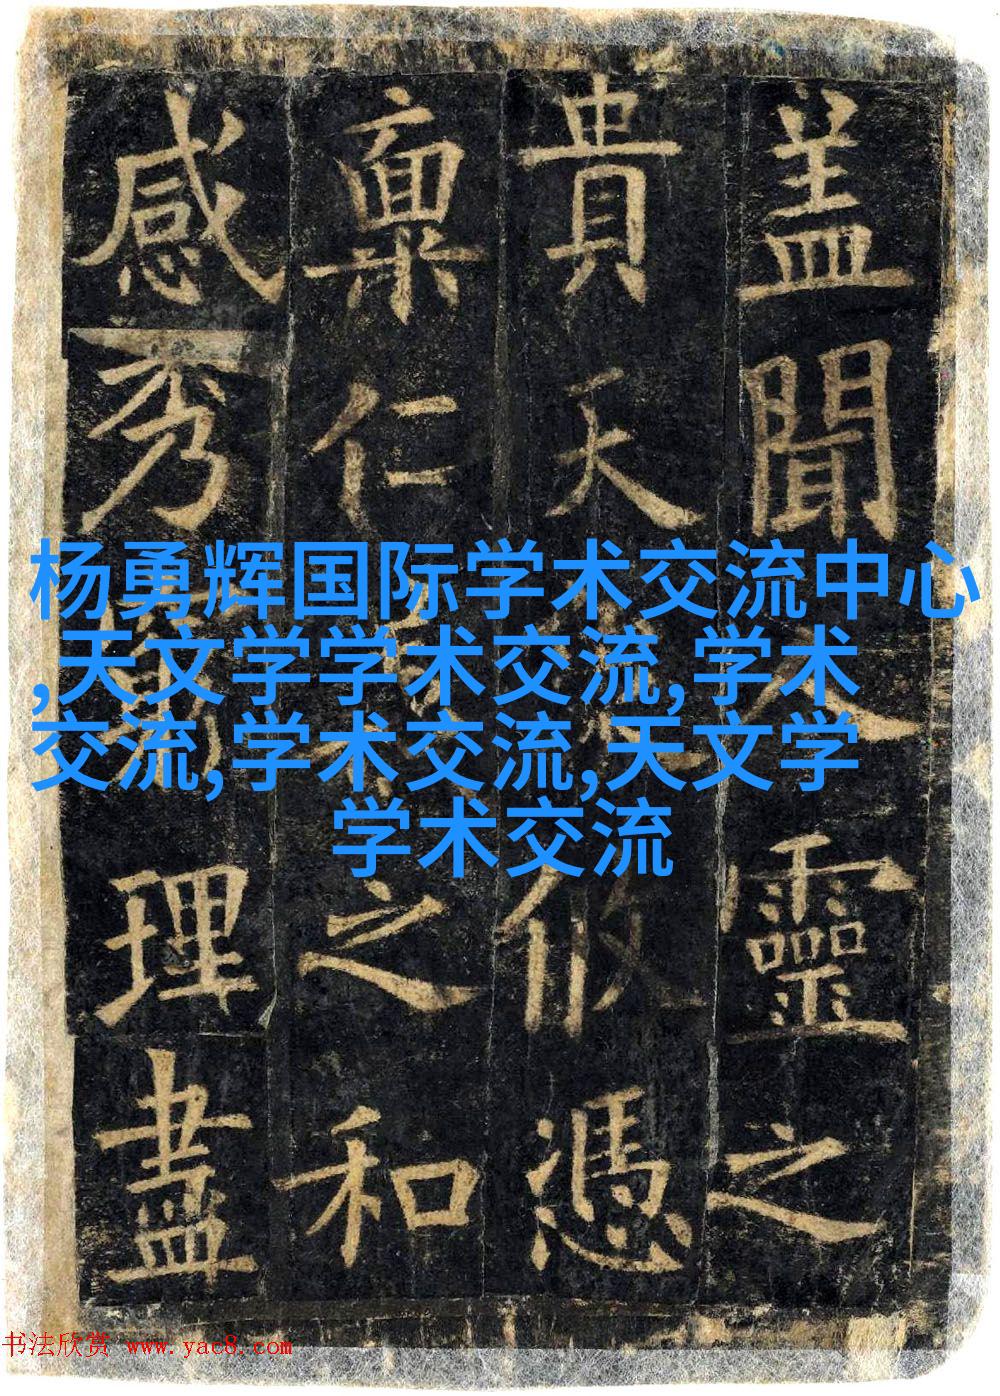 盖聞靈之
貴天攸憑
稟仁之和
感秀理盡
杨勇辉国际学术交流中心
,天文学学术交流,学术
交流,学术交流,天文学
学术交流
书法欣赏 www.yac8.com